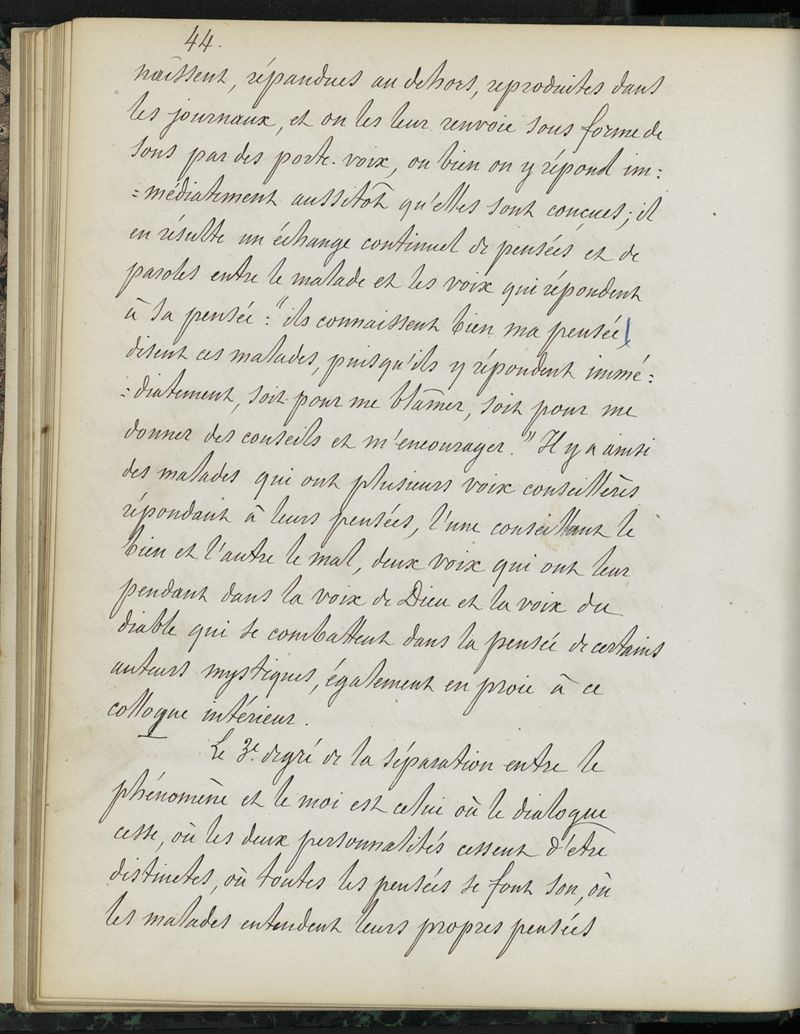 44.
naissent, répandues au dehors, reproduites dans
les journaux, et on les leur renvoie sous forme de
sons par des porte-voix, ou bien on y répond im:
=médiatement aussitôt qu'elles sont conçues; il
en résulte un échange continuel de pensées et de
paroles entre le malade et les voix qui répondent
à sa pensée: "ils connaissent bien ma pensée,
disent ces malades, puisqu'ils y répondent immé:
=diatement, soit pour me blâmer, soit pour me
donner des conseils et m'encourager." Il y a ainsi
des malades qui ont plusieurs voix conseillères
répondant à leurs pensées, l'une conseillant le
bien et l'autre le mal, deux voix qui ont leur
pendant dans la voix de Dieu et la voix du
diable qui se combattent dans la pensée de certains
auteurs mystiques, également en proie à ce
colloque intérieur.
Le 3e. degré de la séparation entre le
phénomène et le moi est celui où le dialogue
cesse, où les deux personnalités cessent d'être
distinctes, où toutes les pensées se font son, où
les malades entendent leurs propres pensées